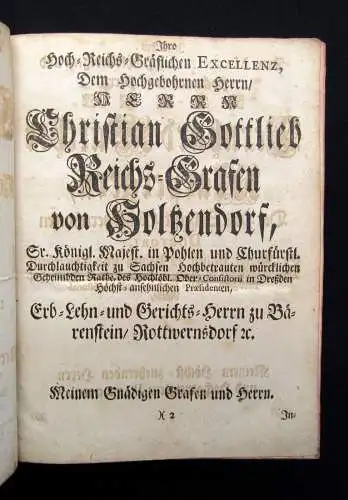 Ihro
Hoch-Reichs-Gräflichen EXCELLENZ,
Dem Hochgebohrnen Herrn/
HERRN
Christian Gottlieb
Reichs-Grafen
von Holtzendorf,
Sr. Königl. Majest. in Pohlen und Churfürstl.
Durchlauchtigkeit zu Sachsen Hochbetrauten würcklichen
Geheimbden Rathe, des Hochlöbl. Ober-Consistorii in Dreßden
Höchst-ansehnlichen Præsidenten,
Erb-Lehn-und Gerichts-Herrn zu Bä-
renstein/ Rottwernsdorf ꝛc.
Meinem Gnädigen Grafen und Herrn.
)( 2
In-